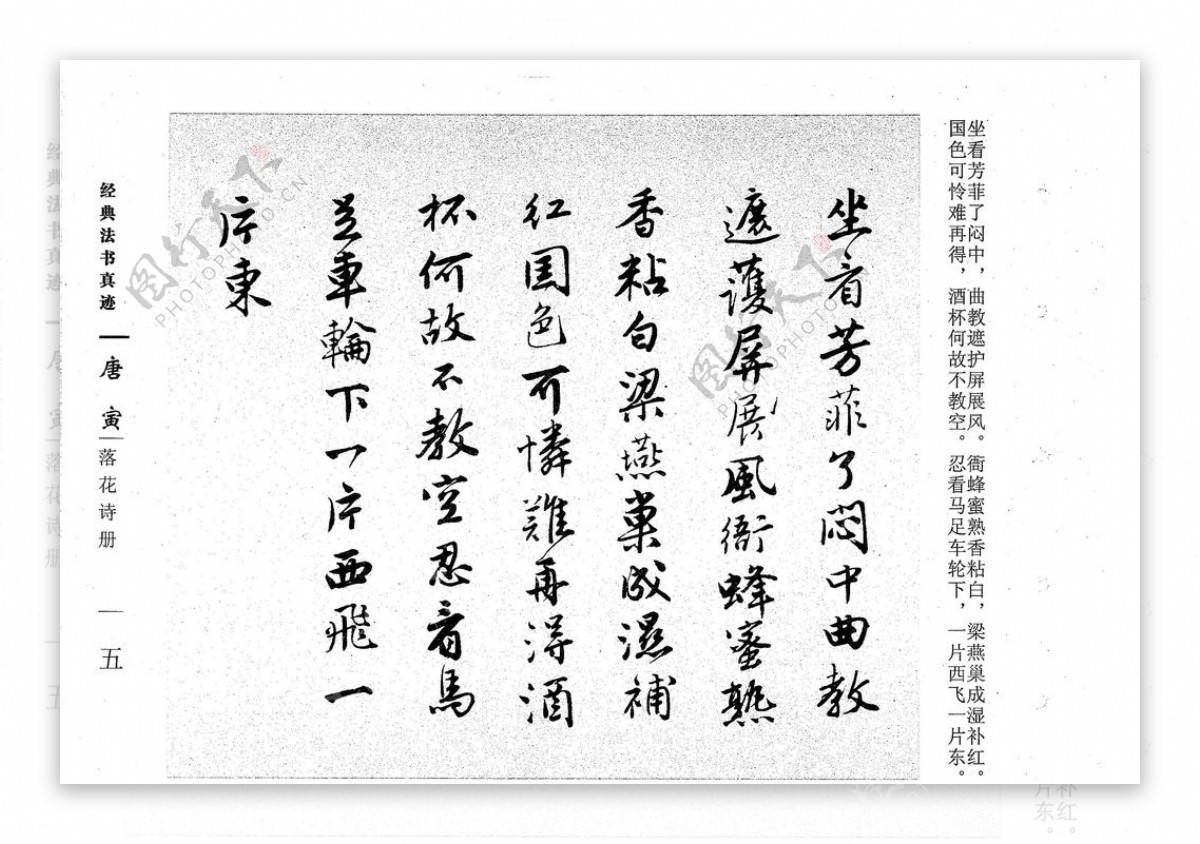 坐看芳菲了闷中，曲教遮护屏展风。衙蜂蜜熟香粘白，梁燕巢成湿补红。
国色可怜难再得，酒杯何故不教空。忍看马足车轮下，一片西飞一片东。
坐看芳菲了悶中曲教
遮護屏展風衙蜂蜜熟
香粘白梁燕巢成濕補
红国色可憐難再得酒
杯何故不教空忍看馬
足車輪下一片西飛一
片東
经典法书真迹 唐寅 落花诗册 五
图行天下 PHOTOPHOTO.CN
图行天下 PHOTOPHOTO.CN